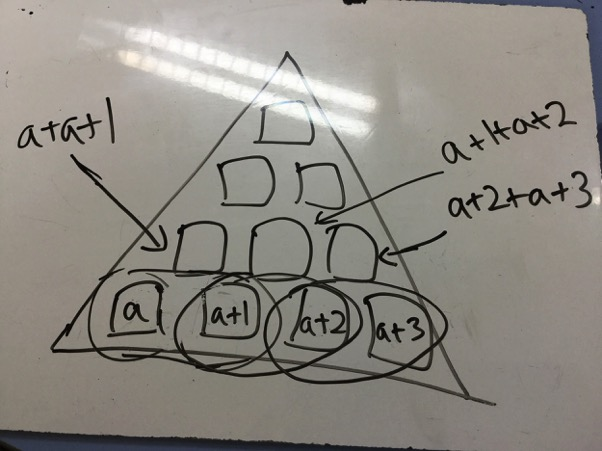 a+a+1
a+1+a+2
a+2+a+3
a
a+1
a+2
a+3